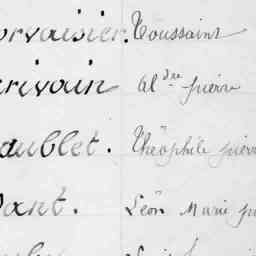 orvaisier. Toussaint
crivain Al^dre pierre
aublet. Théophile pierre
Dant. Léon Marie